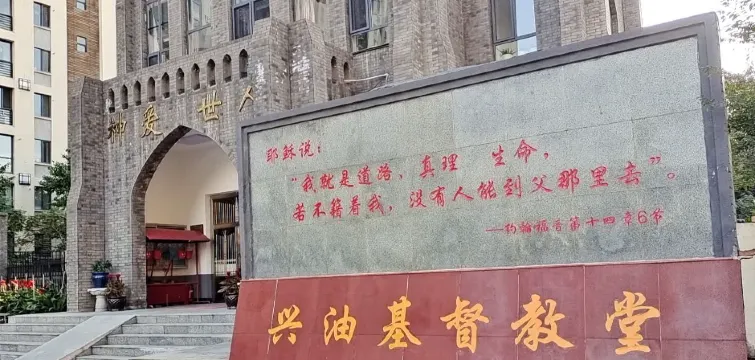 神爱世人
耶稣说：
“我就是道路、真理 生命，
若不籍着我，没有人能到父那里去”。
——约翰福音第十四章6节
兴油基督教堂